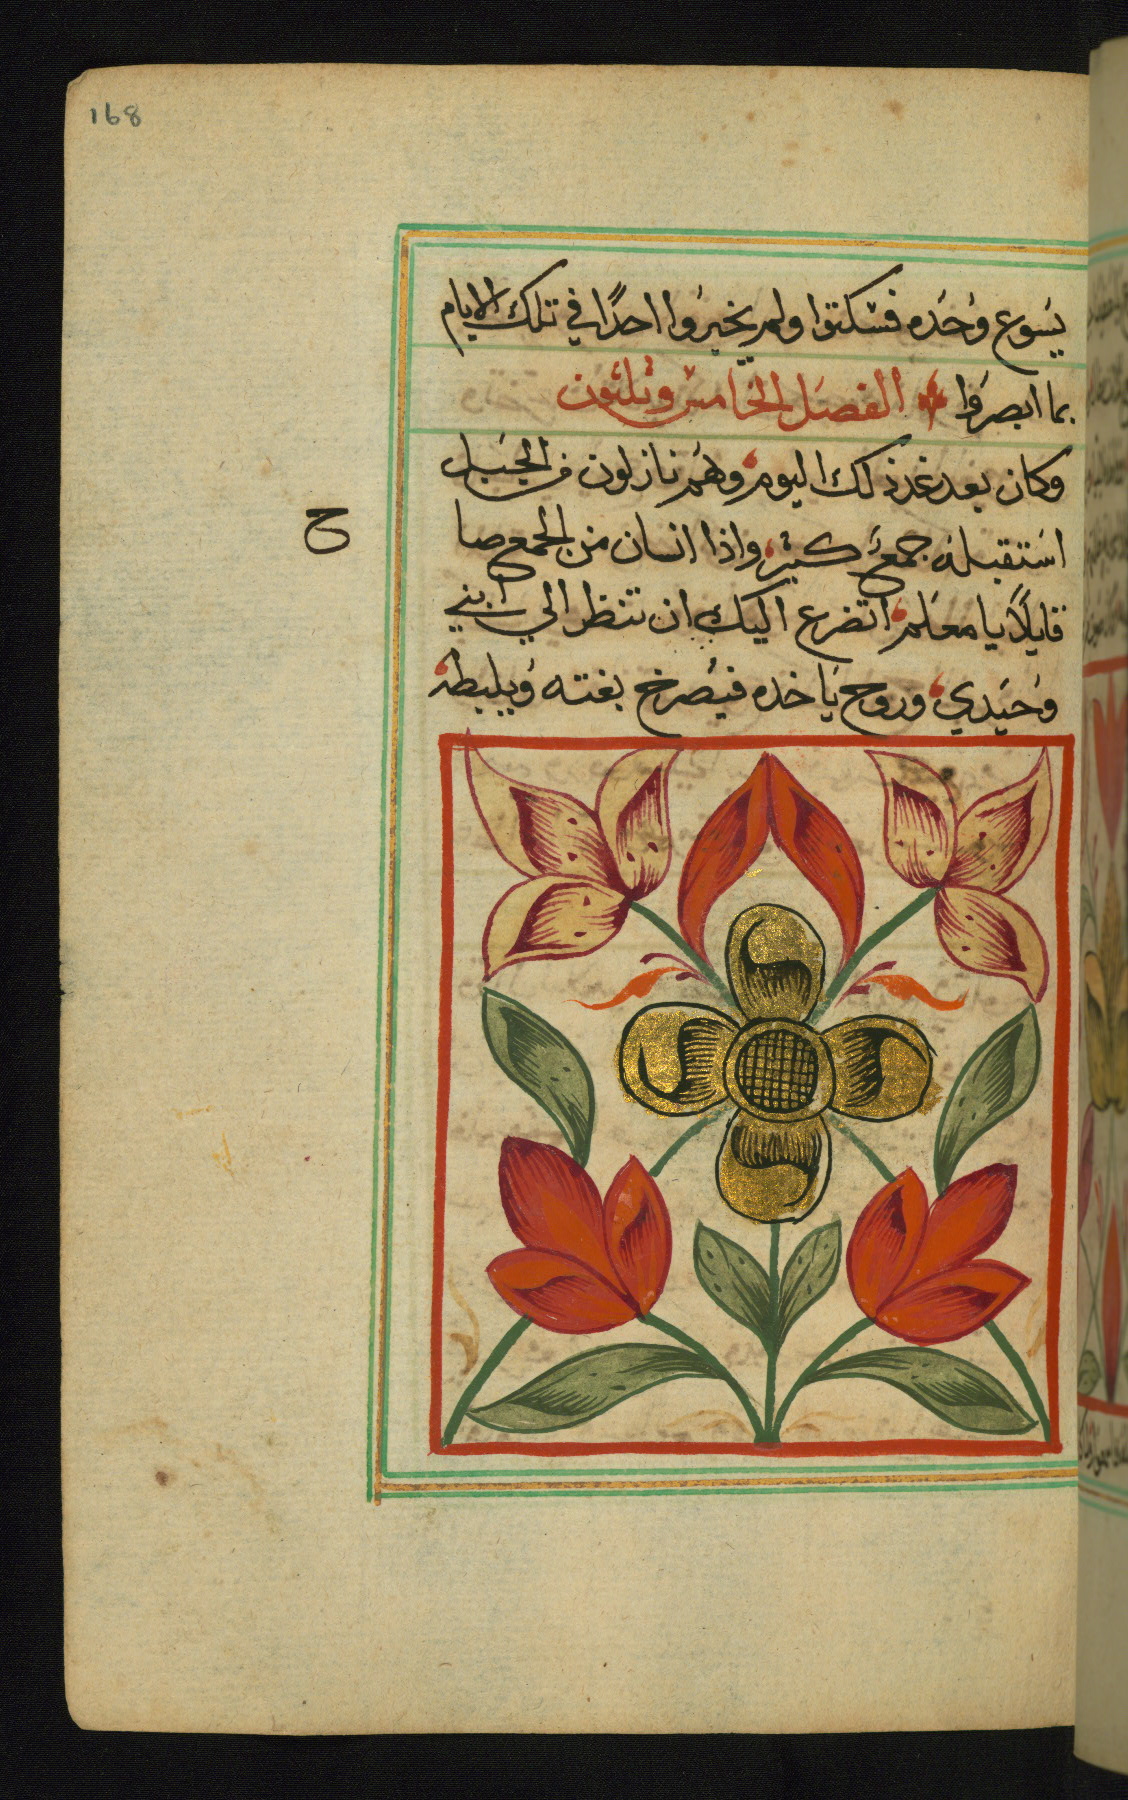 168
يسوع وحده فسكتوا ولم يخبروا احدًا في تلك الايام
بما ابصروا الفصل الخامس وثلثون
وكان بعد غد ذلك اليوم وهم نازلون من الجبل
ح
استقبله جمع كثير واذا انسان من الجمع صا
قايلاً يا معلم اتضرع اليك ان تنظر الي ابني
وحيدي وروح ياخده فيصرخ بغته ويلبطه